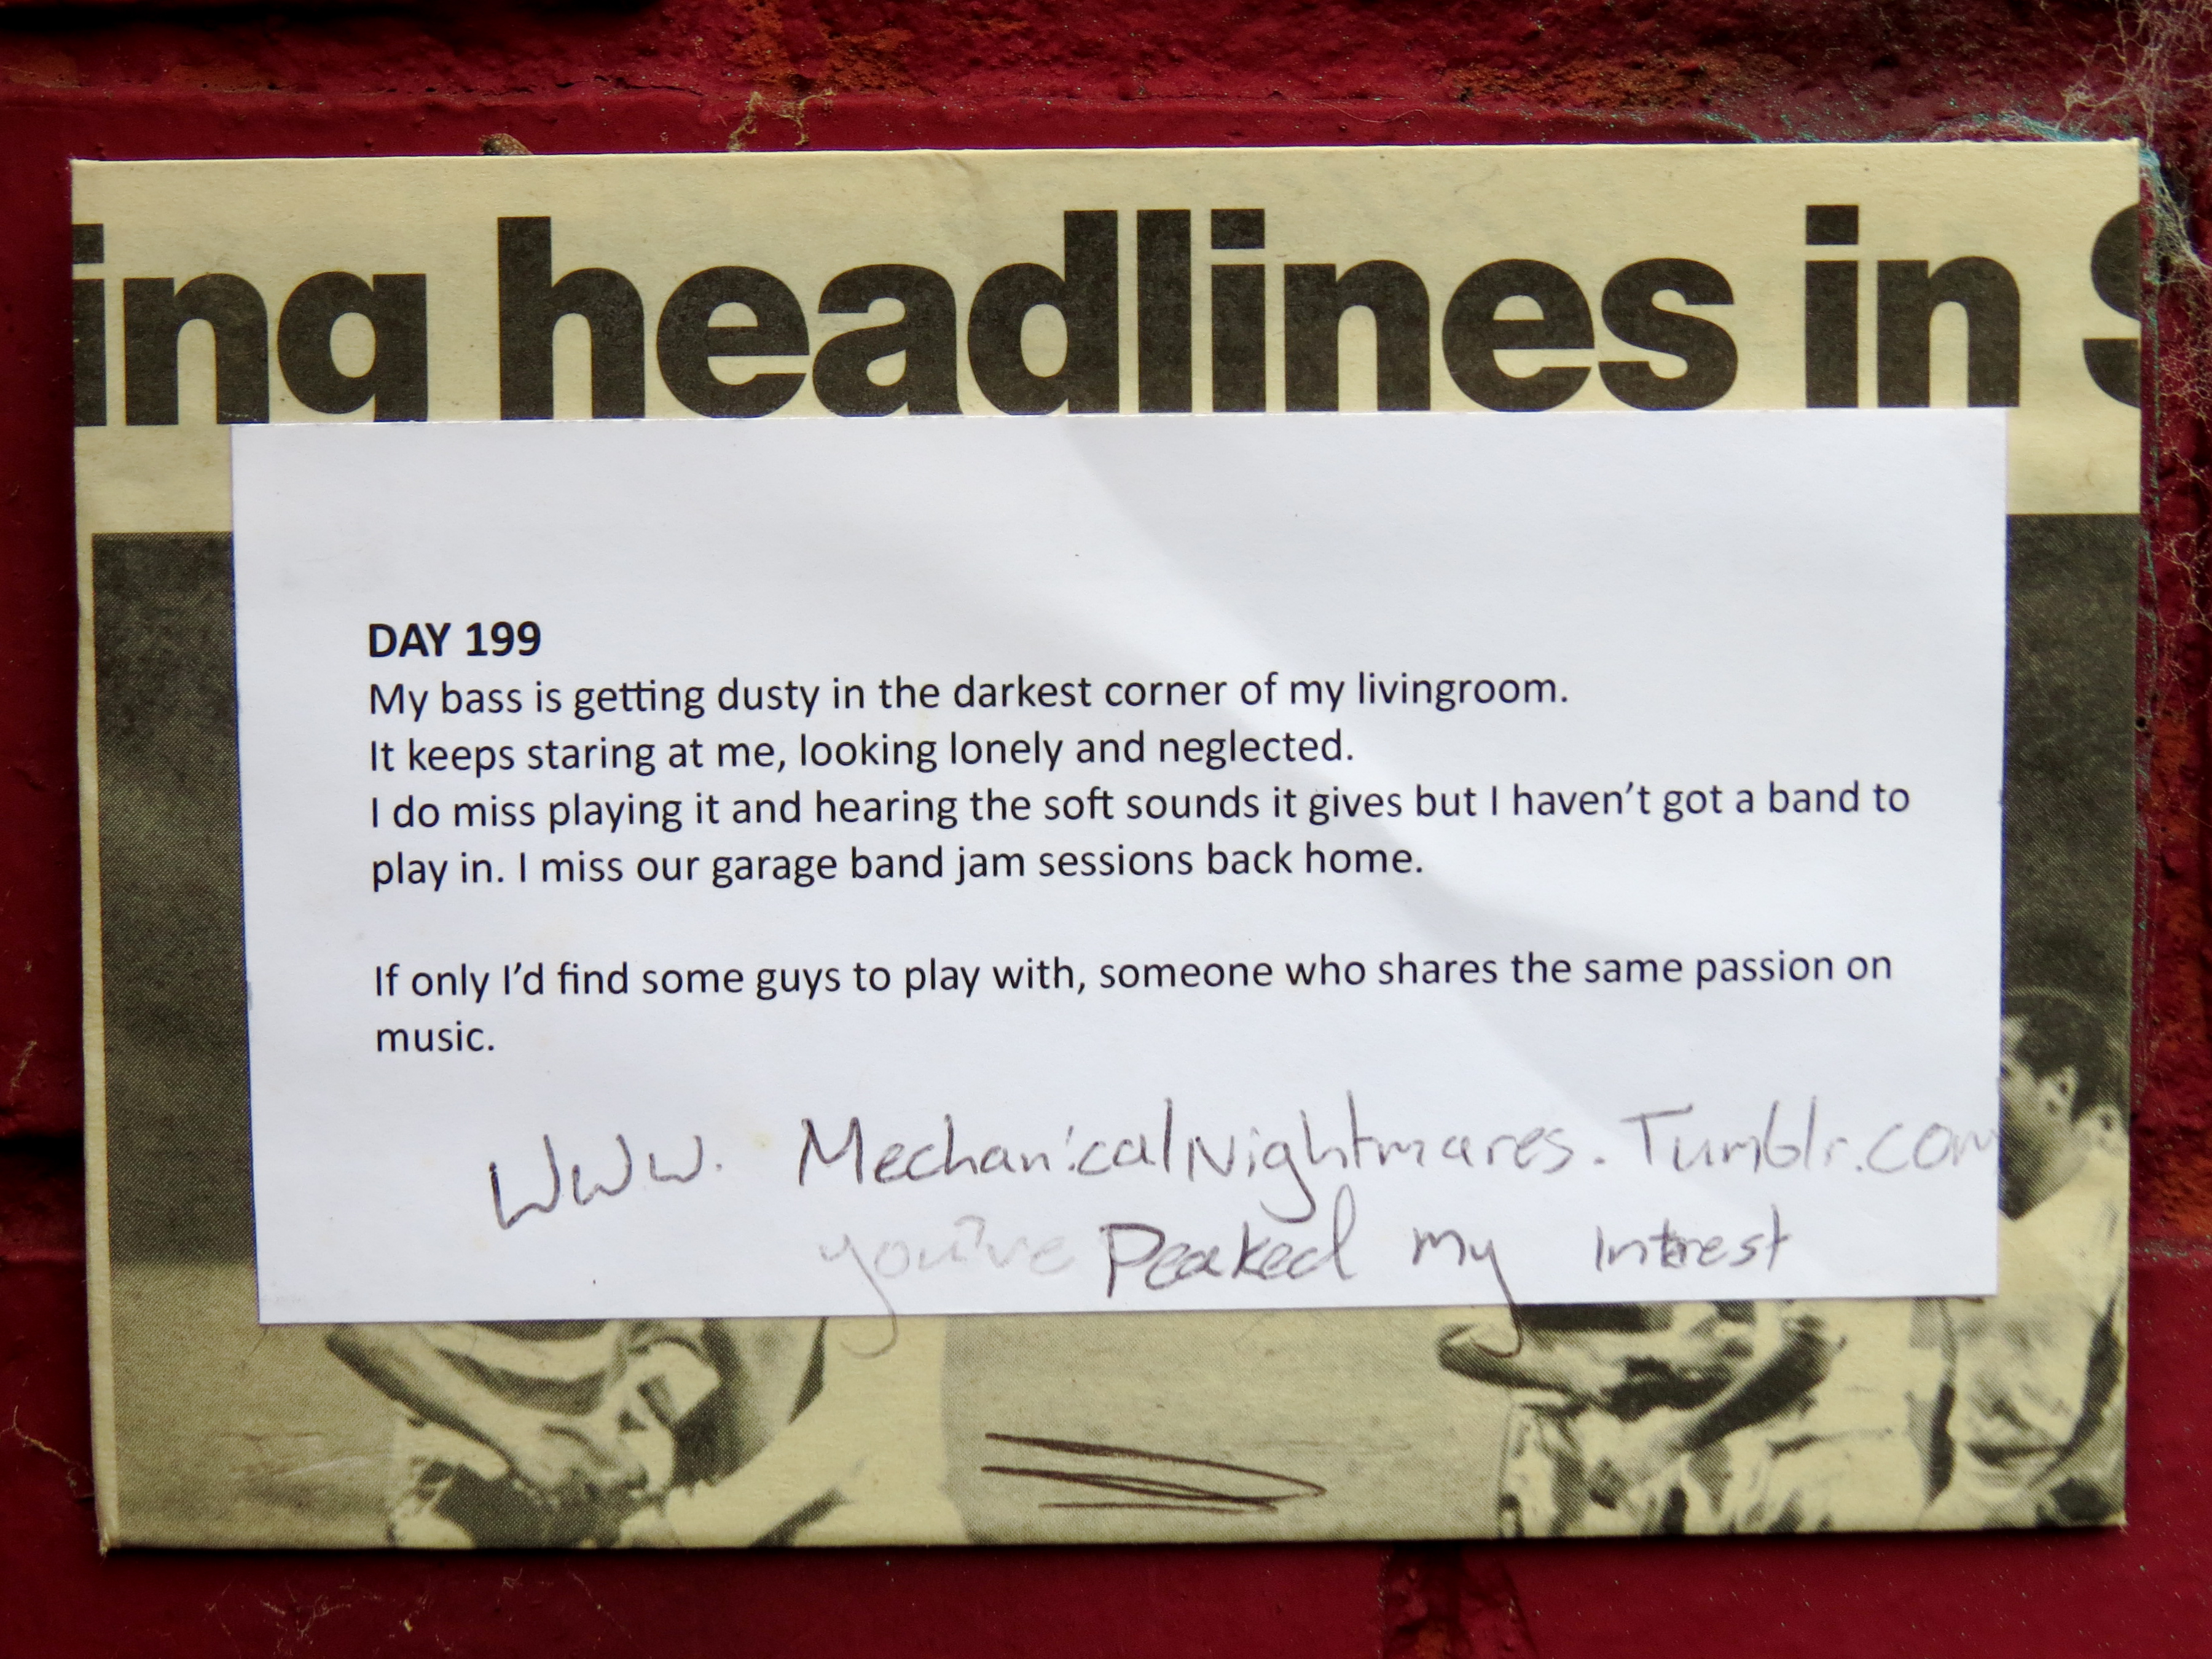 ing headlines in S
DAY 199
My bass is getting dusty in the darkest corner of my livingroom.
It keeps staring at me, looking lonely and neglected.
I do miss playing it and hearing the soft sounds it gives but I haven't got a band to
play in. I miss our garage band jam sessions back home.
If only I'd find some guys to play with, someone who shares the same passion on
music.
WWW. MechanicalNightmares.Tumblr.com
you've Peaked my Intrest